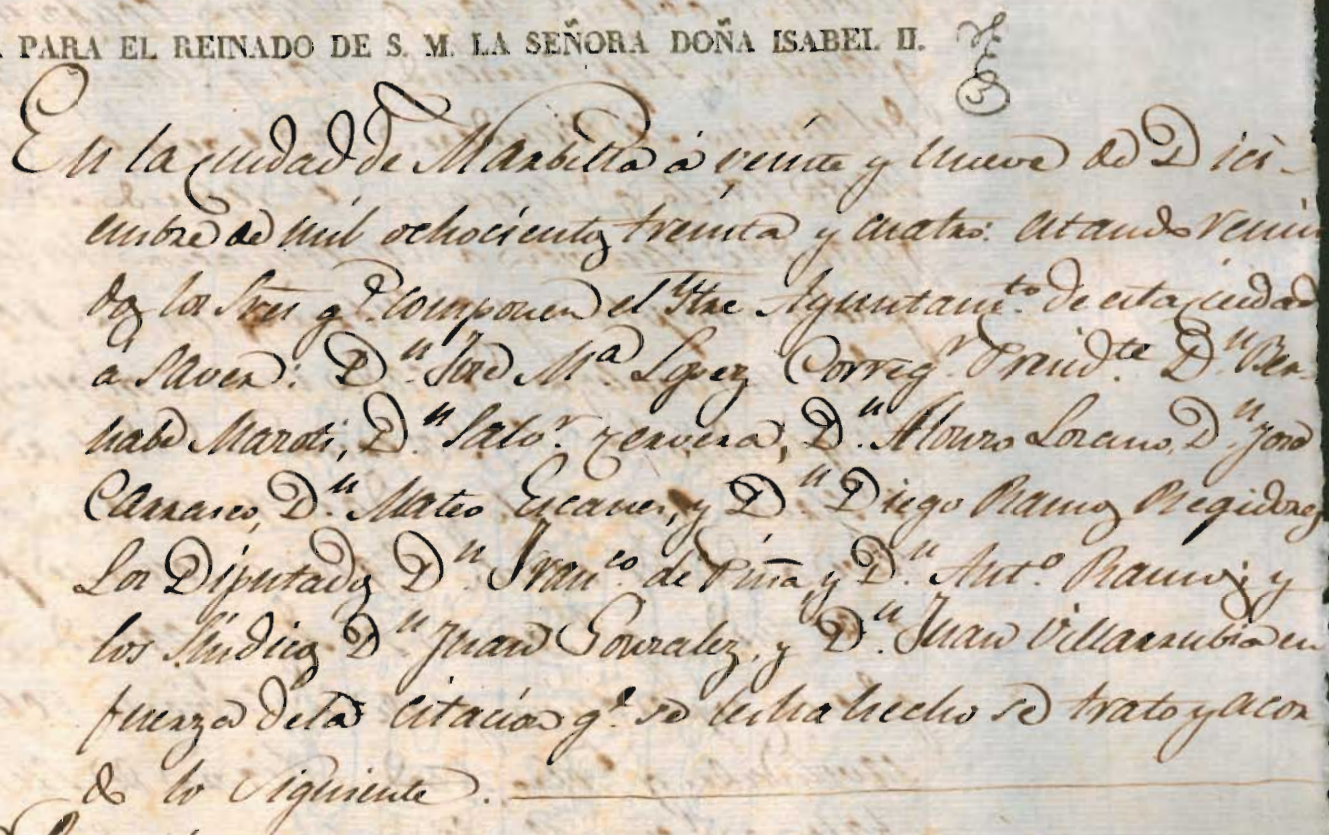 . PARA EL REINADO DE S. M. LA SEÑORA DOÑA ISABEL II.
En la ciudad de Marbella á veinte y nueve de Dici-
embre de mil ochocientos treinta y cuatro: estando reuni
dos los Sres q.e componen el Ylltre Ayuntam.to de esta ciudad
á Saver: D.n José M.a Lopez Correg.r Presid.te D.n Ber-
nabé Maroti, D.n Salv.r Zervera, D.n Alonso Lozano, D.n José
Carrasco, D.n Mateo Escaner, y D.n Diego Ramos Regidores
Los Diputados D.n Fran.co de Piña, y D.n Ant.o Ramos; y
los Sindicos D.n Juan Gonzalez, y D.n Juan Villarrubia en
fuerza dela citacion q.e se les ha hecho se trato y acor
do lo siguiente.